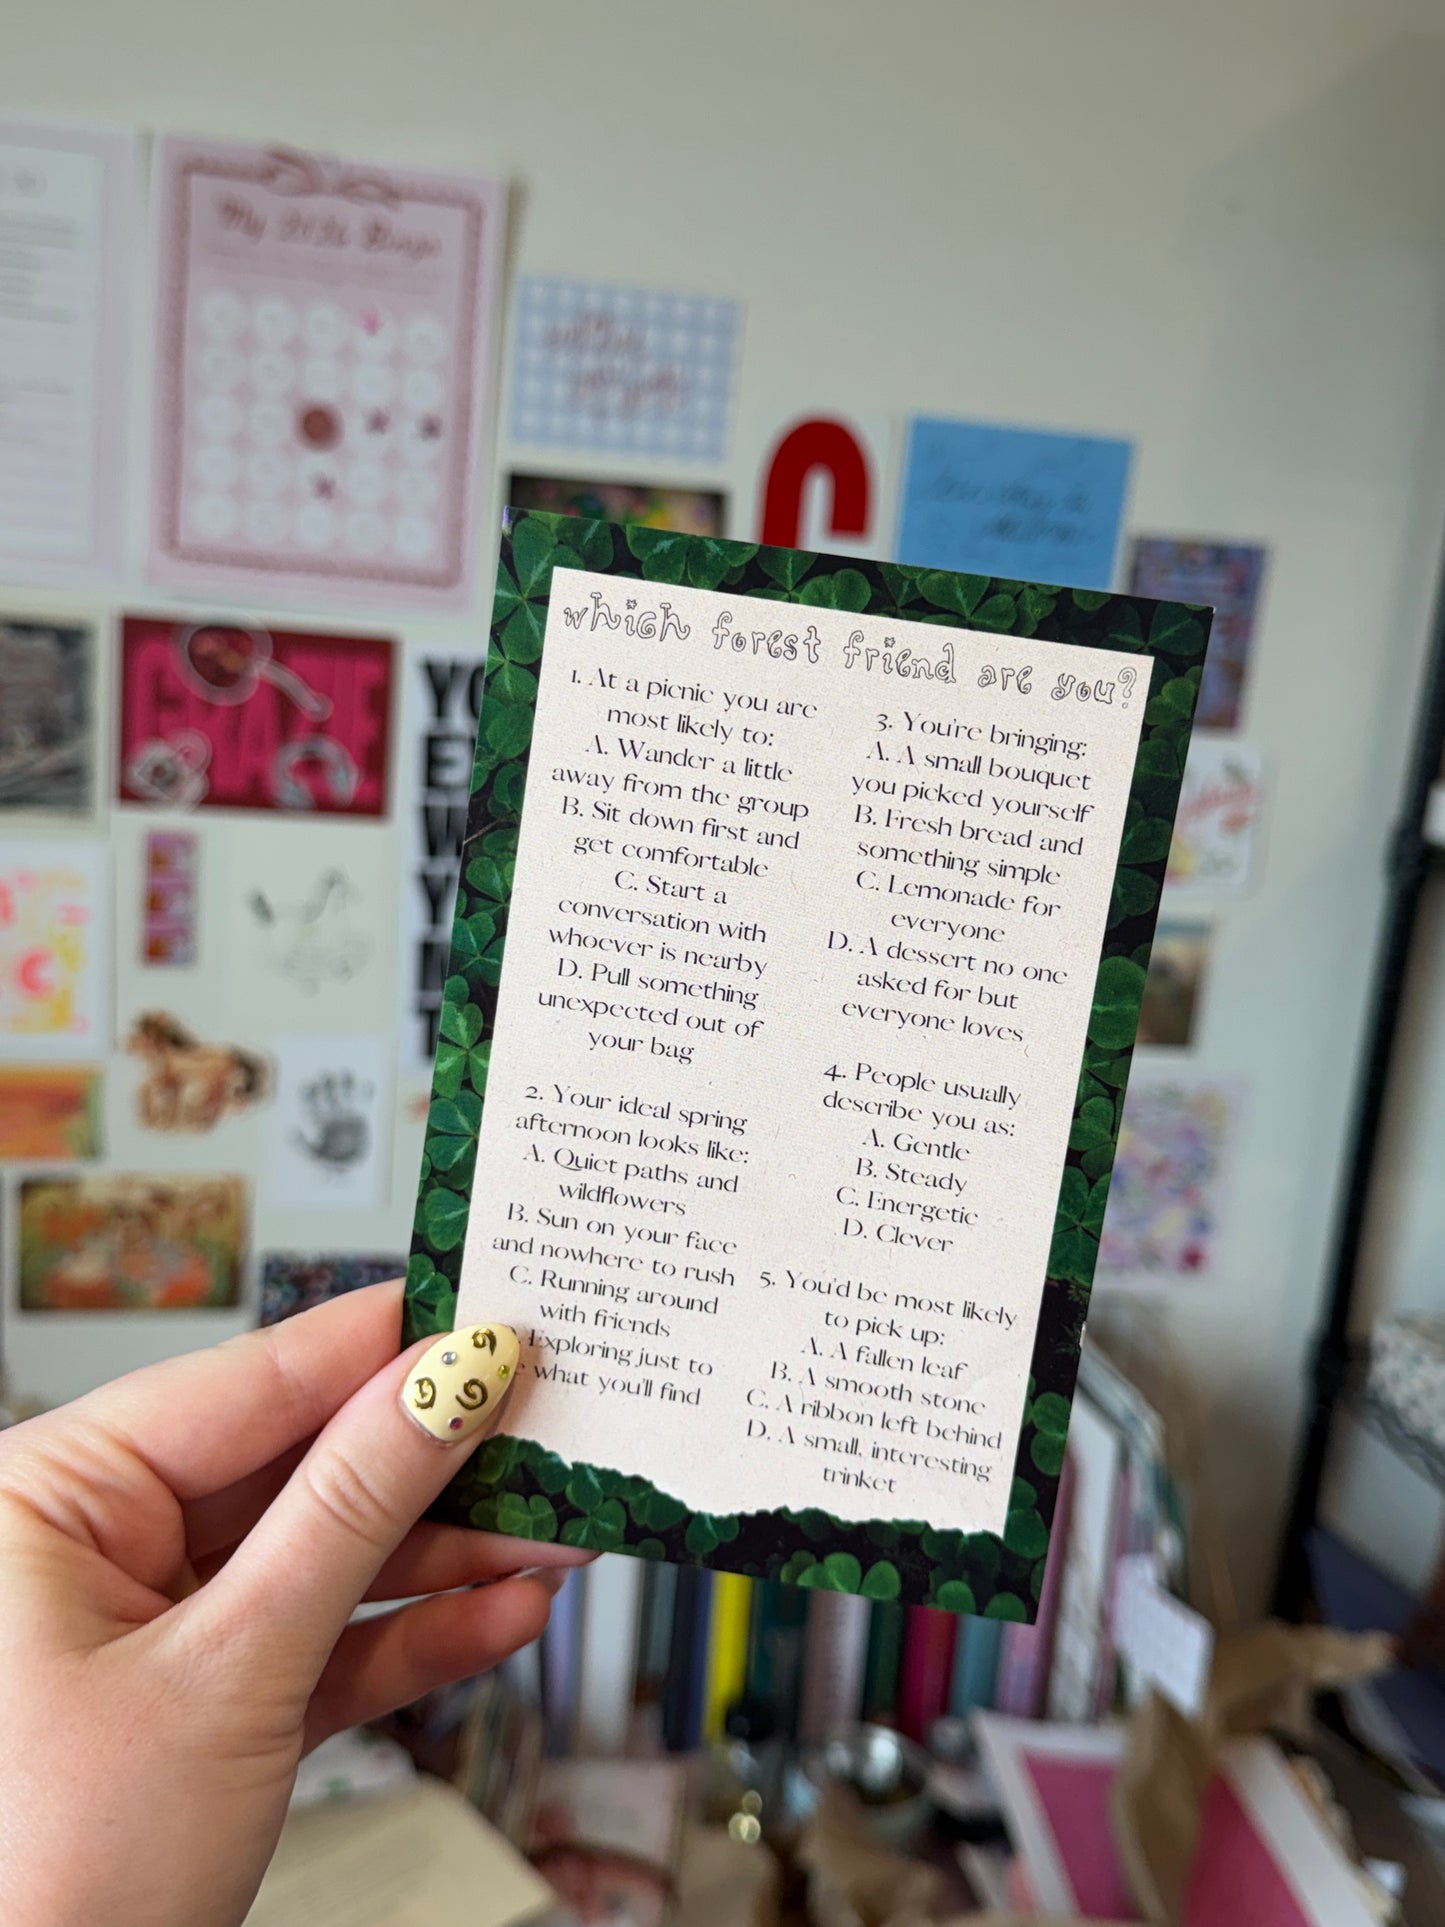 My 2026 Bingo
YO
E
W
Y
N
T
which forest friend are you?
1. At a picnic you are
most likely to:
A. Wander a little
away from the group
B. Sit down first and
get comfortable
C. Start a
conversation with
whoever is nearby
D. Pull something
unexpected out of
your bag
2. Your ideal spring
afternoon looks like:
A. Quiet paths and
wildflowers
B. Sun on your face
and nowhere to rush
C. Running around
with friends
Exploring just to
what you'll find
3. You're bringing:
A. A small bouquet
you picked yourself
B. Fresh bread and
something simple
C. Lemonade for
everyone
D. A dessert no one
asked for but
everyone loves
4. People usually
describe you as:
A. Gentle
B. Steady
C. Energetic
D. Clever
5. You'd be most likely
to pick up:
A. A fallen leaf
B. A smooth stone
C. A ribbon left behind
D. A small, interesting
trinket